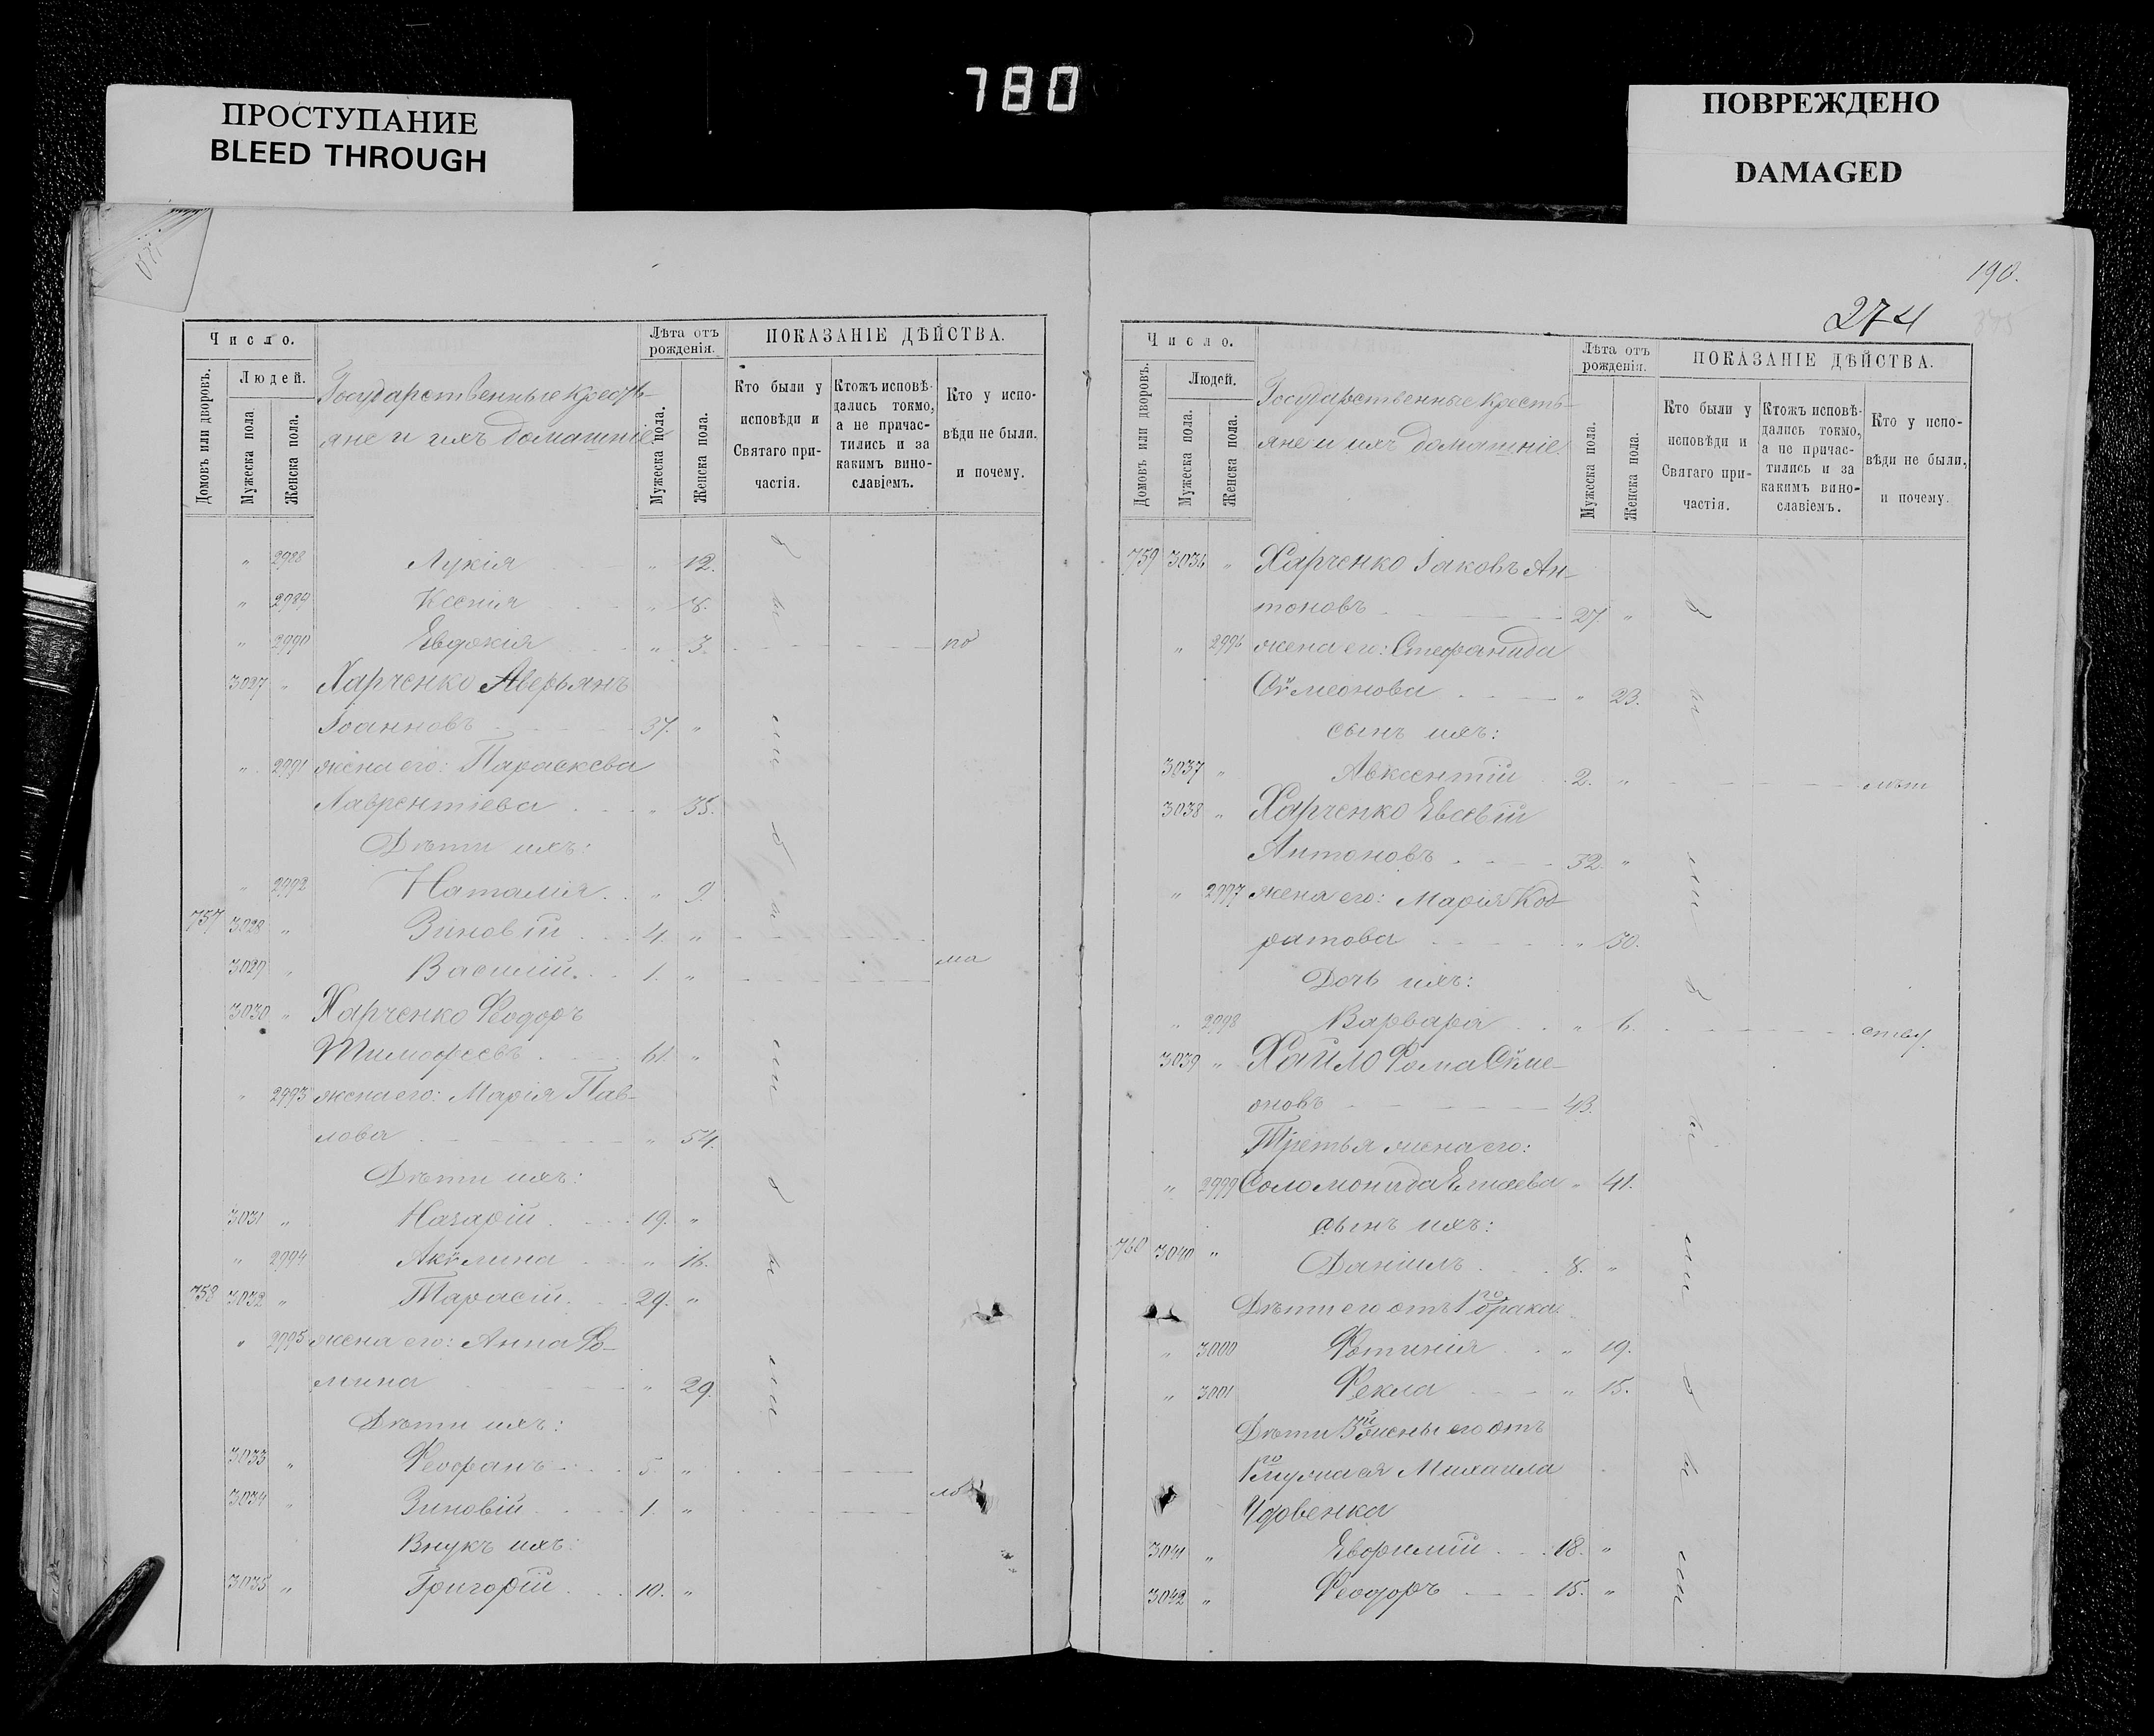 780
ПРОСТУПАНИЕ
BLEED THROUGH
ПОВРЕЖДЕНО
DAMAGED
Число.
Людей.
Домовъ или дворовъ.
Мужеска пола.
Женска пола.
Государственные кресть-
яне и ихъ домашніе
Лѣта отъ рожденія.
Мужеска пола.
Женска пола.
ПОКАЗАНІЕ ДѢЙСТВА.
Кто были у исповѣди и Святаго при-частія.
Ктожъ исповѣ-дались токмо, а не причас-тились и за какимъ вино-славіемъ.
Кто у испо-вѣди не были, и почему.
" 2988 Лукія " 12.
" 2989 Ксенія " 8.
" 2990 Евдокія " 3. по
3027 " Харченко Аверьянъ
Іоанновъ 37. "
" 2991 жена его: Параскева
Лаврентіева " 35.
Дѣти ихъ:
" 2992 Наталія " 9.
757 3028 " Зиновій 4. "
3029 " Василій 1. " ма
3030 " Харченко Ѳеодоръ
Тимофеевъ 61. "
" 2993 жена его: Марія Пав-
лова " 54.
Дѣти ихъ:
3031 " Назарій 19. "
" 2994 Акѵлина " 16.
758 3032 " Тарасій 29. "
" 2995 жена его: Анна Ѳо-
мина " 29.
Дѣти ихъ:
3033 " Ѳеофанъ 5. "
3034 " Зиновій 1. " ло
Внукъ ихъ:
3035 " Григорій 10. "
190.
274
Число.
Людей.
Домовъ или дворовъ.
Мужеска пола.
Женска пола.
Государственные кресть-
яне и ихъ домашніе.
Лѣта отъ рожденія.
Мужеска пола.
Женска пола.
ПОКАЗАНІЕ ДѢЙСТВА.
Кто были у исповѣди и Святаго при-частія.
Ктожъ исповѣ-дались токмо, а не причас-тились и за какимъ вино-славіемъ.
Кто у испо-вѣди не были, и почему.
759 3036 " Харченко Іаковъ Ан-
тоновъ 27. "
" 2996 жена его: Стефанида
Сѵмеонова " 23.
сынъ ихъ:
3037 " Авксентій 2. " лѣт
3038 " Харченко Евсевій
Антоновъ 32. "
" 2997 жена его: Марія Код-
ратова " 30.
Дочь ихъ:
" 2998 Варвара " 6. ству.
3039 " Хайло Ѳома Сѵме-
оновъ 43.
Третья жена его:
" 2999 Соломонида Елисеева " 41.
сынъ ихъ:
760 3040 " Даніилъ 8. "
Дѣти его отъ 1го брака
" 3000 Фотинія " 19.
" 3001 Ѳекла " 15.
Дѣти 3й жены его отъ
1го мужа ея Михаила
Удовенка
3041 " Евфимій 18. "
3042 " Ѳеодоръ 15. "